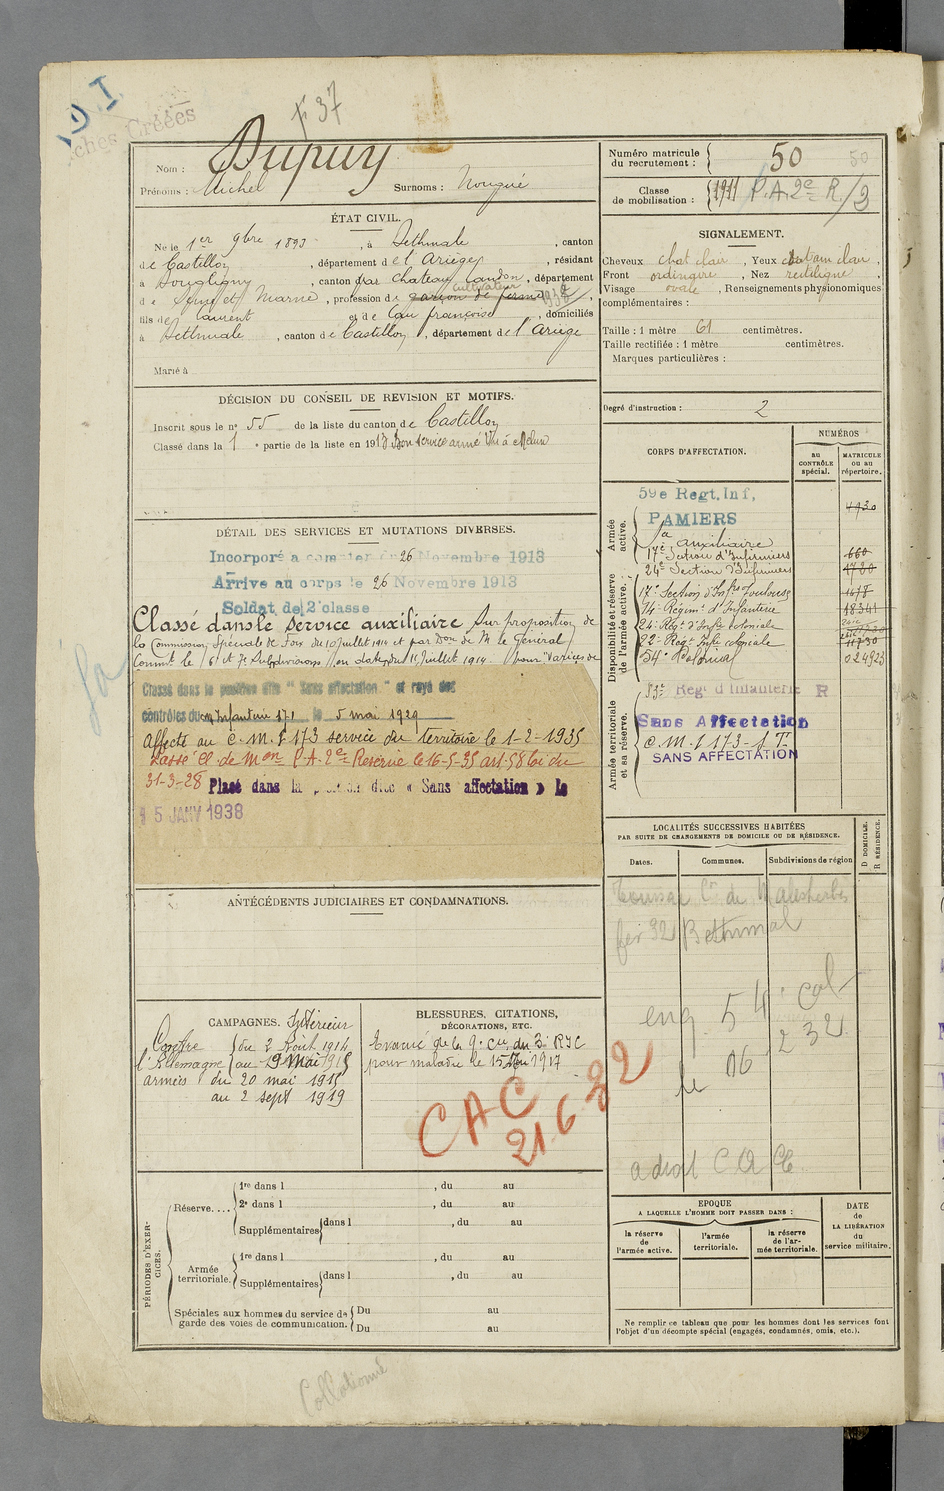 D I
ches Créées
f 37
Nom : Dupuy
Prénoms : Michel Surnoms : Nougué
ÉTAT CIVIL.
Né le 1er 9bre 1893, à Bethmale, canton
de Castillon, département de l'Ariège, résidant
à Souppes, canton de Chateau Landon, département
de Seine et Marne, profession de garçon de ferme cultivateur 1938
fils de Laurent et de Cau françoise, domiciliés
à Bethmale, canton de Castillon, département de l'Ariège
Marié à
DÉCISION DU CONSEIL DE REVISION ET MOTIFS.
Inscrit sous le n° 55 de la liste du canton de Castillon
Classé dans la 1e partie de la liste en 1913 Bon service armé Vu à Melun
DÉTAIL DES SERVICES ET MUTATIONS DIVERSES.
Incorporé à compter du 26 Novembre 1913
Arrivé au corps le 26 Novembre 1913
Soldat de 2e classe
Classé dans le service auxiliaire Sur proposition de
la Commission Spéciale de Foix du 10 juillet 1914 et par Don de M le Général
Commt le 6e et 7e Subdivisions en date du 11 juillet 1914 pour "Varices de
Classé dans la position dite "Sans affectation" et rayé des
contrôles du Infanterie 171 le 5 mai 1929
Affecté au C.M.I 173 service du territoire le 1-2-1935
Passé Cl. de Mon P.A. 2e Réserve le 16-5-35 art 58 loi du
31-3-28 Placé dans la position dite « Sans affectation » le
15 JANV 1938
ANTÉCÉDENTS JUDICIAIRES ET CONDAMNATIONS.
CAMPAGNES. Intérieur
Contre du 2 Août 1914
l'Allemagne au 19 Mai 1915
armées du 20 mai 1915
au 2 sept 1919
BLESSURES, CITATIONS,
DÉCORATIONS, ETC.
Evacué de la 9e Cie du 3e RIC
pour maladie le 15 Mai 1917
CAC
21.6.32
PÉRIODES D'EXERCICES.
Réserve.... 1re dans l , du au
2e dans l , du au
Supplémentaires dans l , du au
Armée territoriale. 1re dans l , du au
Supplémentaires dans l , du au
Spéciales aux hommes du service de garde des voies de communication. Du au
Du au
Collationné
Numéro matricule du recrutement : 50 50
Classe de mobilisation : 1911 P.A. 2e R./3
SIGNALEMENT.
Cheveux chat clair, Yeux chatain clair,
Front ordinaire, Nez rectiligne,
Visage ovale, Renseignements physionomiques
complémentaires :
Taille : 1 mètre 61 centimètres.
Taille rectifiée : 1 mètre centimètres.
Marques particulières :
Degré d'instruction : 2
CORPS D'AFFECTATION.
NUMÉROS
au CONTRÔLE spécial.
MATRICULE ou au répertoire.
Armée active.
59e Regt. Inf,
PAMIERS
Sce auxiliaire
17e Section d'Infirmiers 660
24e Section d'Infirmiers 1720
Disponibilité et réserve de l'armée active.
17e Section d'Infres Toulouse
14e Régimt d'Infanterie 18341
24e Regt d'Infie coloniale
22e Regt Infie coloniale 11930
54e Colonial 024923
Armée territoriale et sa réserve.
Regt d'Infanterie R
Sans Affectation
C.M.I 173 - S T.
SANS AFFECTATION
LOCALITÉS SUCCESSIVES HABITÉES
PAR SUITE DE CHANGEMENTS DE DOMICILE OU DE RÉSIDENCE.
Dates. Communes. Subdivisions de région
D DOMICILE.
R RÉSIDENCE.
Cn de Malesherbes
fer 32 Bethmal
eng. 54e col
le 06 1232
a droit CAC
EPOQUE
A LAQUELLE L'HOMME DOIT PASSER DANS :
la réserve de l'armée active.
l'armée territoriale.
la réserve de l'armée territoriale.
DATE de LA LIBÉRATION du service militaire.
Ne remplir ce tableau que pour les hommes dont les services font
l'objet d'un décompte spécial (engagés, condamnés, omis, etc.).